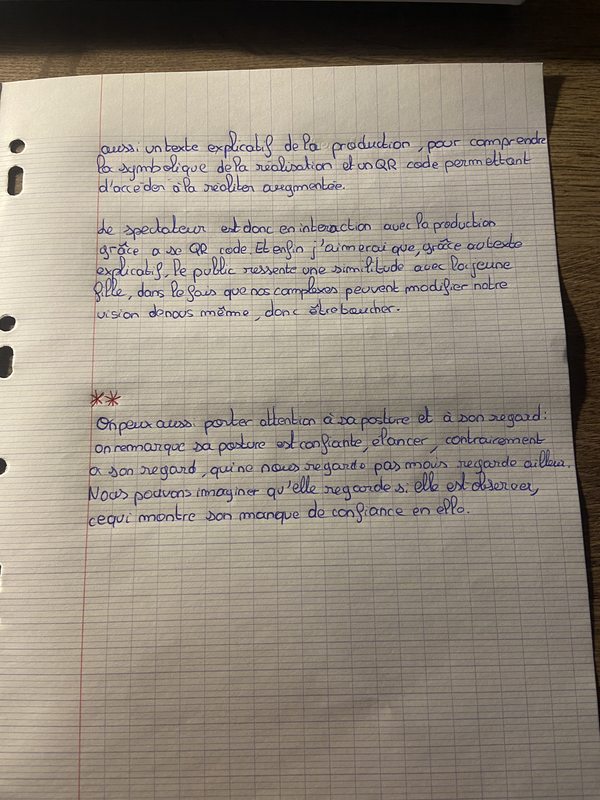 aussi un texte explicatif de la production, pour comprendre
la symbolique de la réalisation et un QR code permettant
d'accéder à la réaliter augmentée.
Le spectateur est donc en interaction avec la production
grâce a se QR code. Et enfin j'aimerai que, grâce au texte
explicatif, le public ressente une similitude avec la jeune
fille, dans le fais que nos complexes peuvent modifier notre
vision de nous même, donc être toucher.
**
On peux aussi porter attention à sa posture et à son regard :
on remarque sa posture est confiante, élancer, contrairement
a son regard, qui ne nous regarde pas mais regarde ailleur.
Nous pouvons imaginer qu'elle regarde si elle est observer,
ce qui montre son manque de confiance en elle.